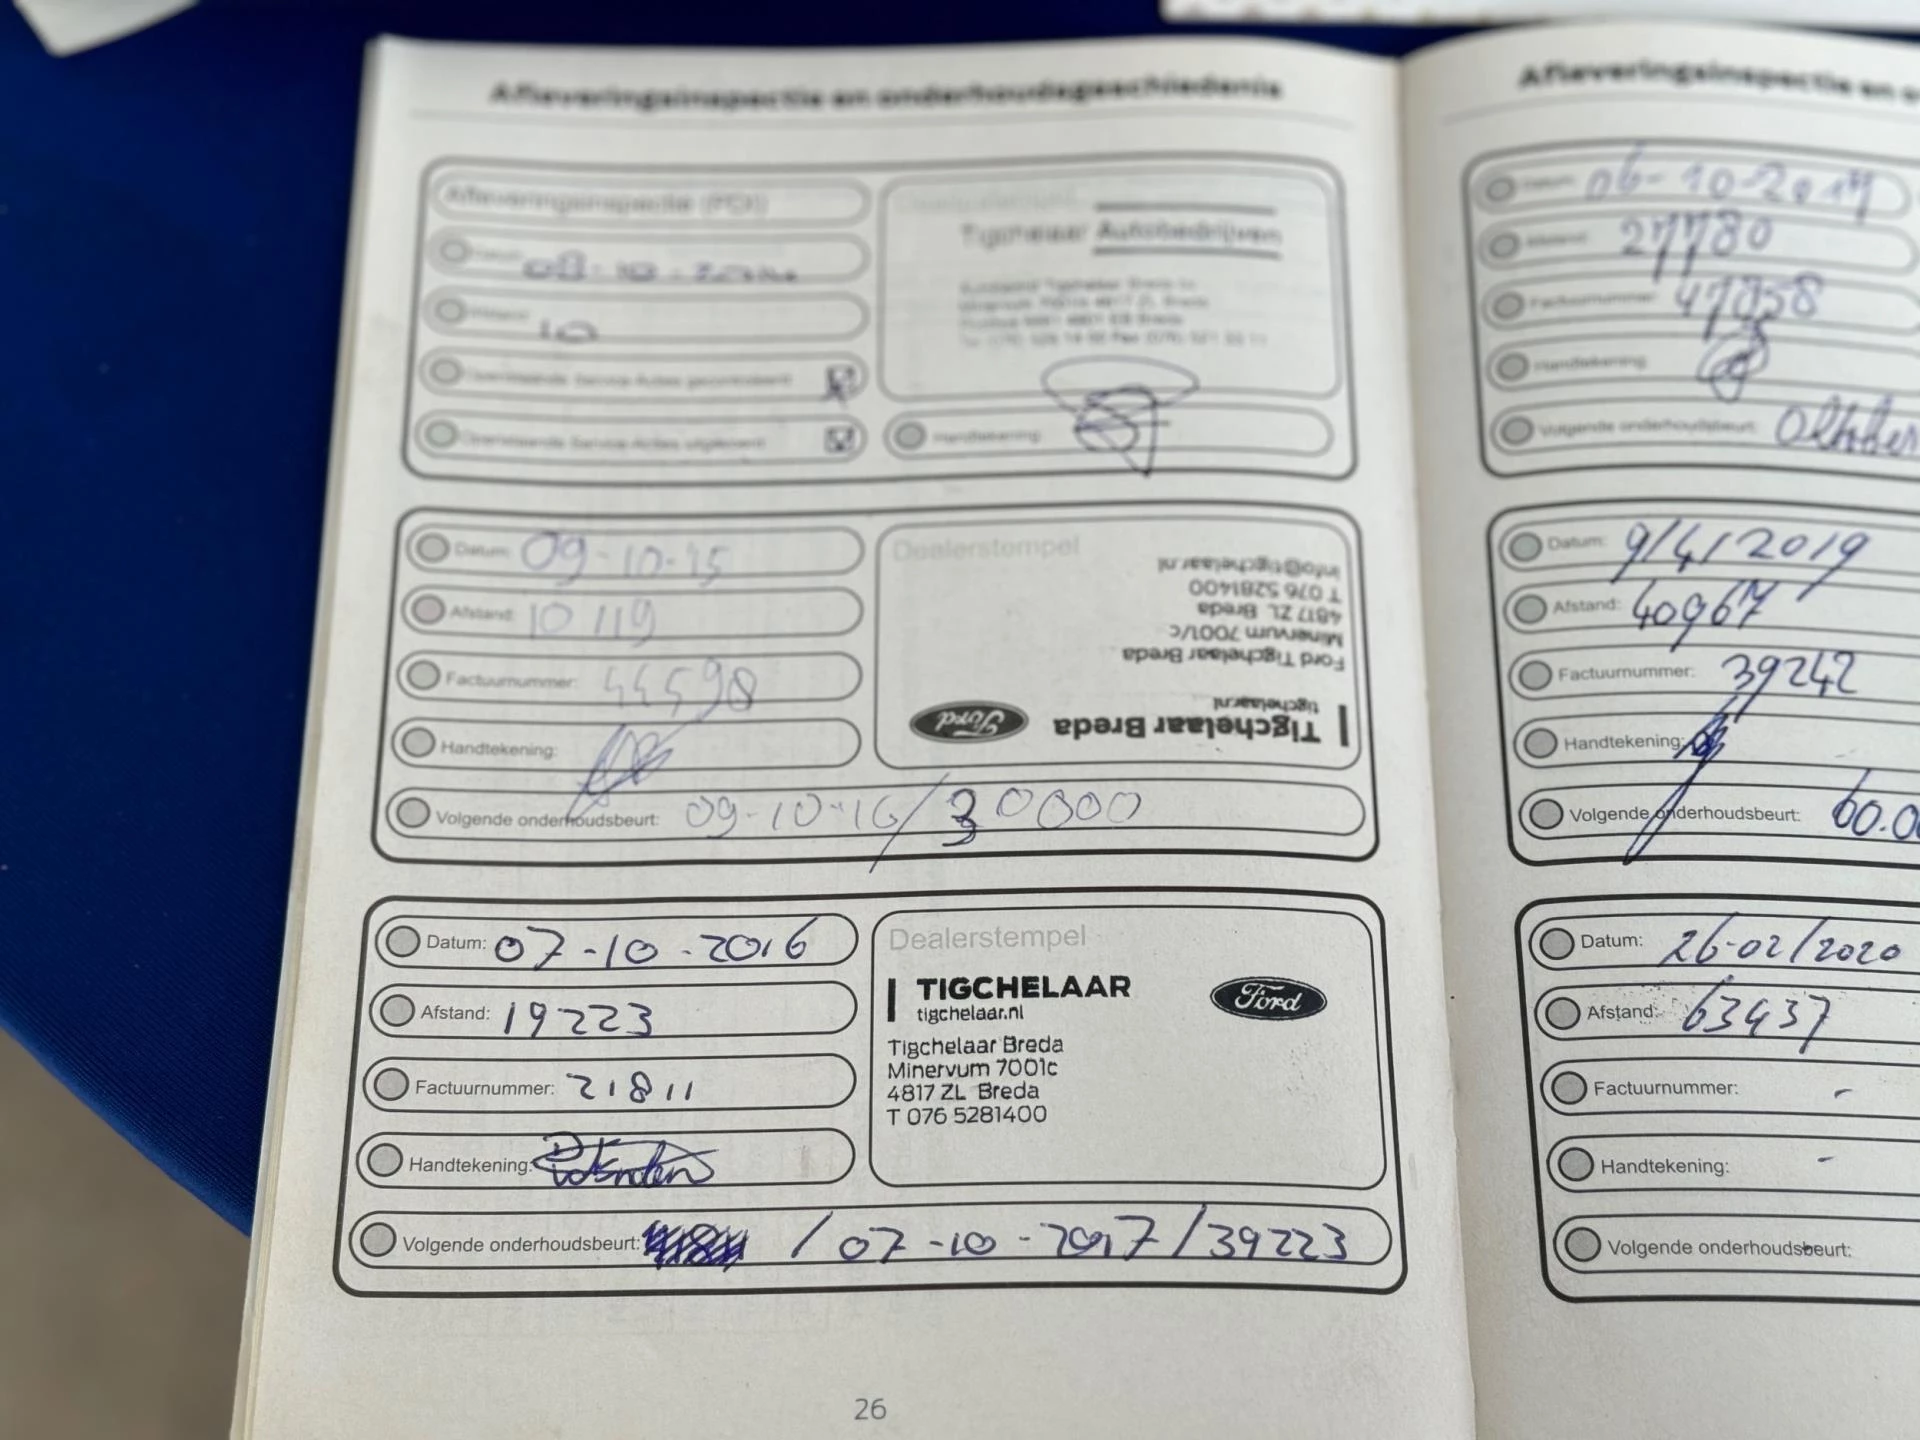 Afleveringsinspectie en onderhoudsgeschiedenis
Afleveringsinspectie (PDI)
Datum: 08-10-2014
Afstand: 10
Openstaande Service Acties gecontroleerd
Openstaande Service Acties uitgevoerd
Dealerstempel
Tigchelaar Autobedrijven
Handtekening:
Datum: 09-10-15
Afstand: 10119
Factuurnummer: 44598
Handtekening:
Volgende onderhoudsbeurt: 09-10-16/30000
Dealerstempel
Tigchelaar Breda
tigchelaar.nl
Ford
Ford Tigchelaar Breda
Minervum 7001/c
4817 ZL Breda
T 076 5281400
info@tigchelaar.nl
Datum: 07-10-2016
Afstand: 19223
Factuurnummer: 21811
Handtekening:
Volgende onderhoudsbeurt: / 07-10-2017/39223
Dealerstempel
TIGCHELAAR
tigchelaar.nl
Ford
Tigchelaar Breda
Minervum 7001c
4817 ZL Breda
T 076 5281400
26
Afleveringsinspectie en
Datum: 06-10-2017
Afstand: 27780
Factuurnummer: 47858
Handtekening:
Volgende onderhoudsbeurt:
Datum: 9/4/2019
Afstand: 40967
Factuurnummer: 39242
Handtekening:
Volgende onderhoudsbeurt: 60.0
Datum: 26-02/2020
Afstand: 63437
Factuurnummer: -
Handtekening: -
Volgende onderhoudsbeurt: